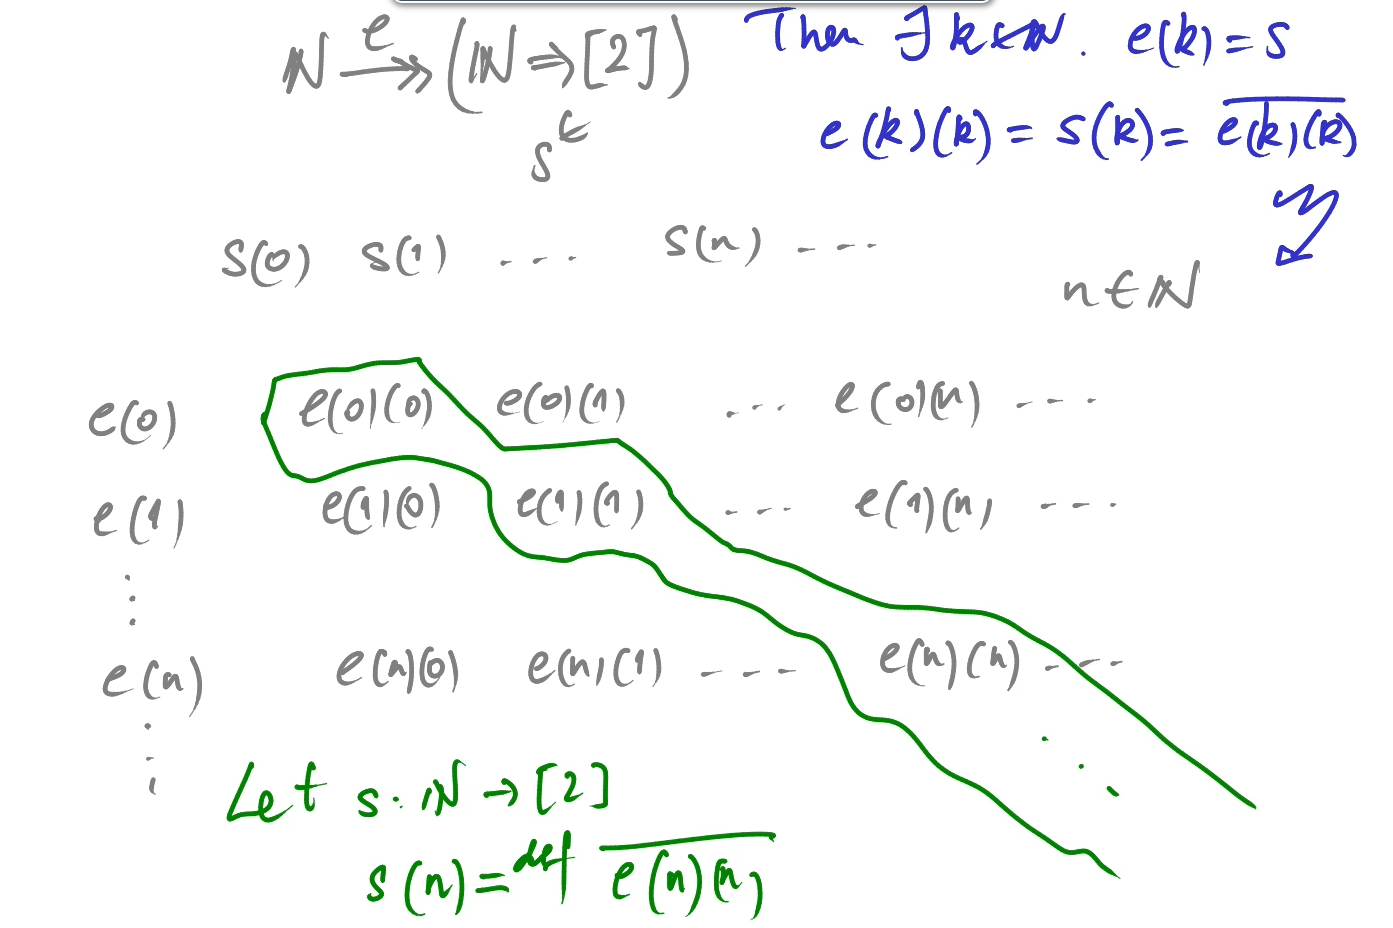 ℕ —e↠ (ℕ ⇒ [2])
Then ∃ k ∈ ℕ. e(k) = s
s ∈
e(k)(k) = s(k) = \overline{e(k)(k)}
s(0) s(1) ... s(n) ...
n ∈ ℕ
e(0) e(0)(0) e(0)(1) ... e(0)(n) ...
e(1) e(1)(0) e(1)(1) ... e(1)(n) ...
⋮
e(n) e(n)(0) e(n)(1) ... e(n)(n) ...
⋮ ⋱
Let s : ℕ → [2]
s(n) =def \overline{e(n)(n)}